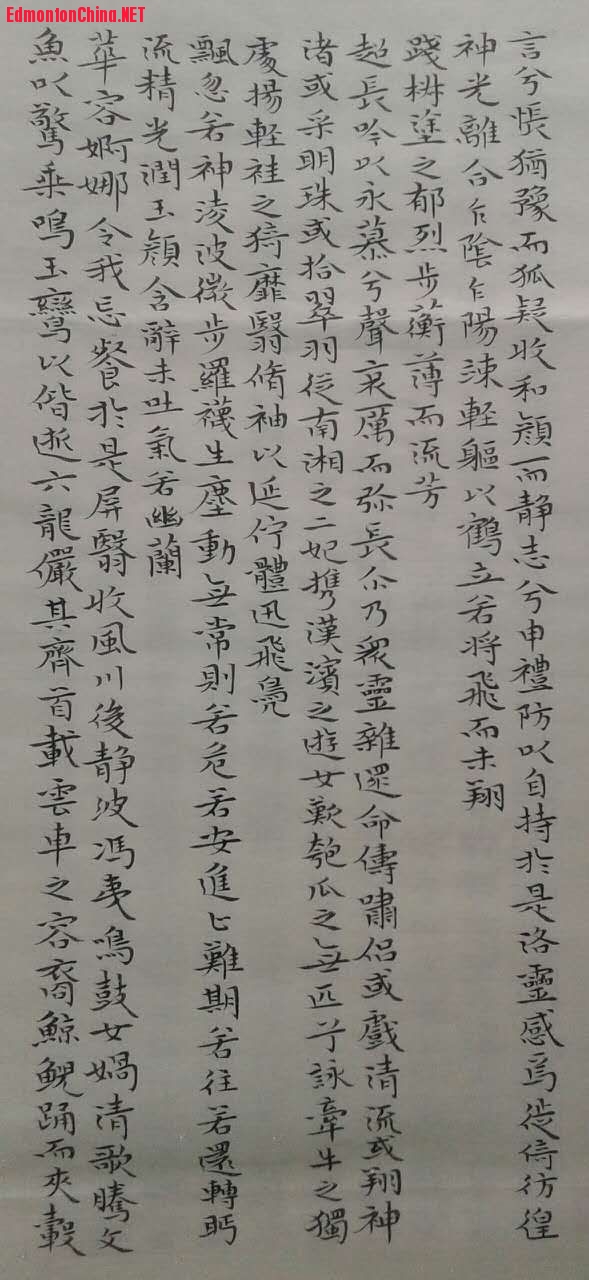 EdmontonChina.NET
言兮悵猶豫而狐疑收和顔而静志兮申禮防以自持於是洛靈感焉徙倚彷徨
神光離合乍陰乍陽竦軽軀以鶴立若将飛而未翔
踐椒塗之郁烈步蘅薄而流芳
超長吟以永慕兮聲哀厲而弥長尒乃衆靈雜遝命儔嘯侶或戲清流或翔神
渚或采明珠或拾翠羽従南湘之二妃攜漢濱之遊女歎匏瓜之無匹兮詠牽牛之獨
處揚軽袿之猗靡翳脩袖以延佇體迅飛鳧
飄忽若神淩波微步羅襪生塵動無常則若危若安進止難期若往若還轉眄
流精光潤玉顔含辭未吐氣若幽蘭
華容婀娜令我忘餐於是屏翳收風川後静波馮夷鳴鼓女媧清歌騰文
魚以驚乗鳴玉鸞以偕逝六龍儼其齊首載雲車之容裔鯨鯢踊而夾轂